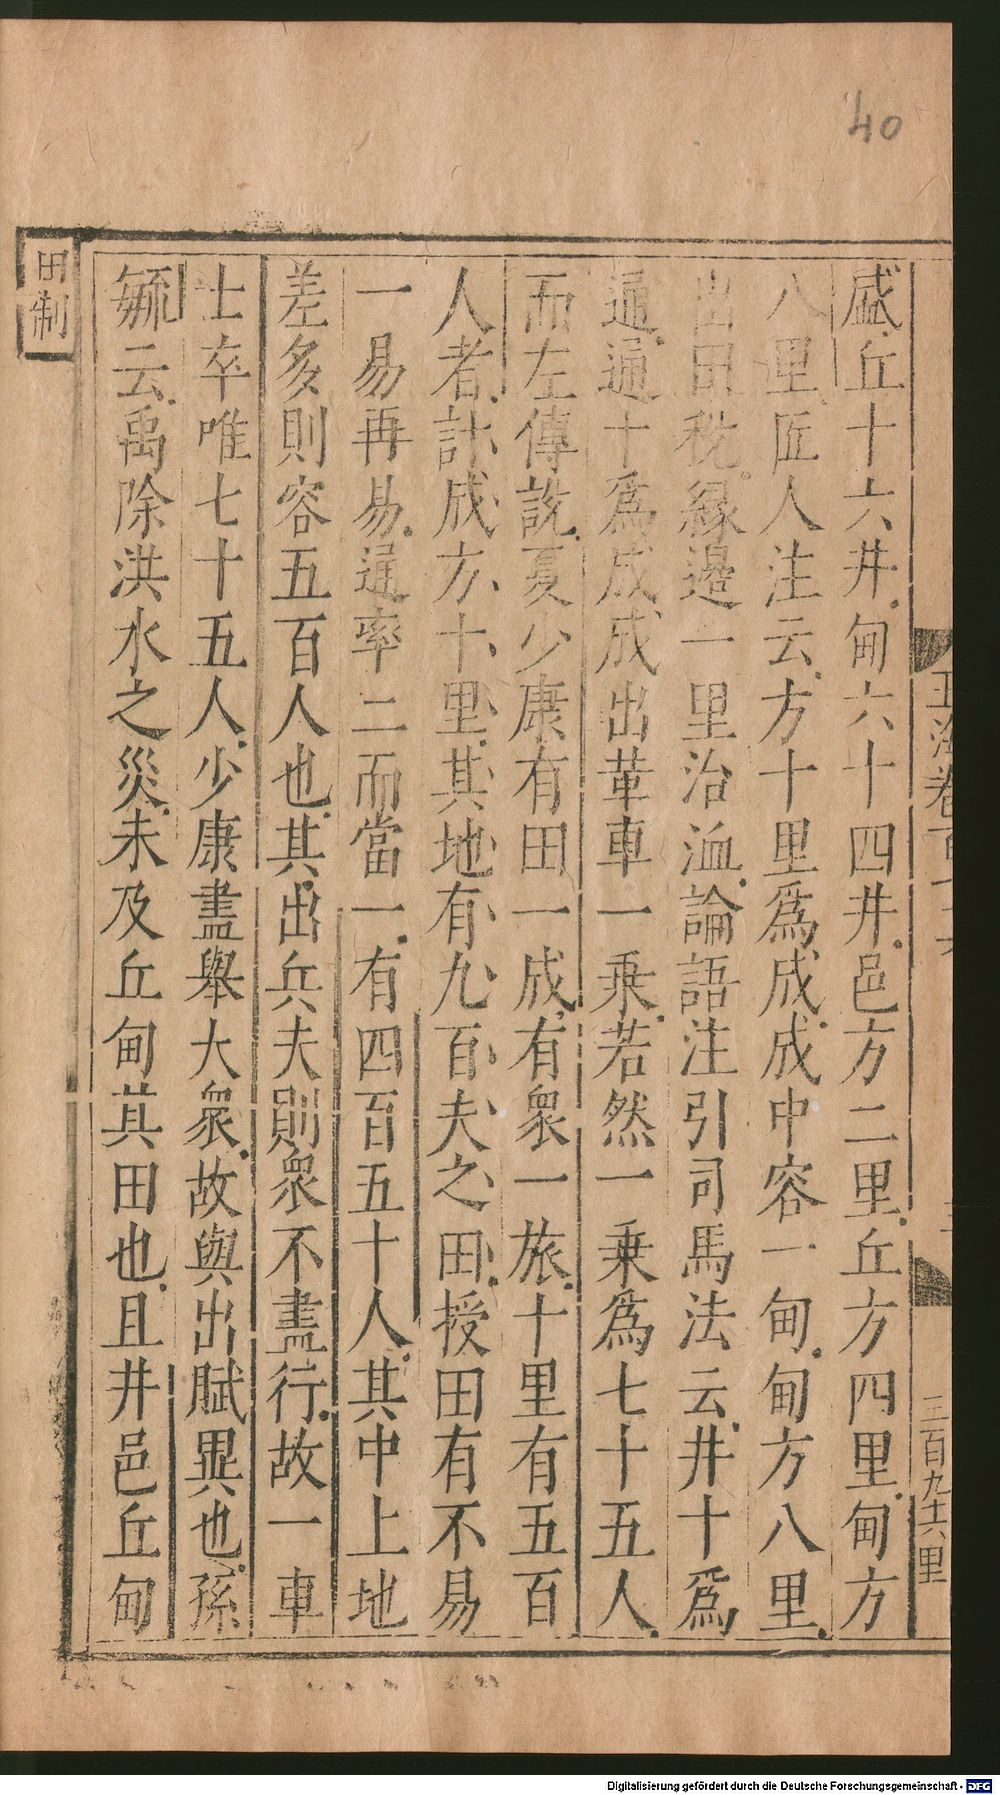 40
盛丘十六井甸六十四井邑方二里丘方四里甸方
八里匠人注云方十里爲成成中容一甸甸方八里
出田稅緣邊一里治洫論語注引司馬法云井十爲
通通十爲成成出革車一乘若然一乘爲七十五人
而左傳說夏少康有田一成有衆一旅十里有五百
人者計成方十里其地有九百夫之田授田有不易
一易再易通率二而當一有四百五十人其中上地
差多則容五百人也其出兵夫則衆不盡行故一車
士卒唯七十五人少康盡舉大衆故與出賦異也孫
毓云禹除洪水之災未及丘甸其田也且井邑丘甸
田制
玉海卷百
三百九十六里
Digitalisierung gefördert durch die Deutsche Forschungsgemeinschaft - DFG